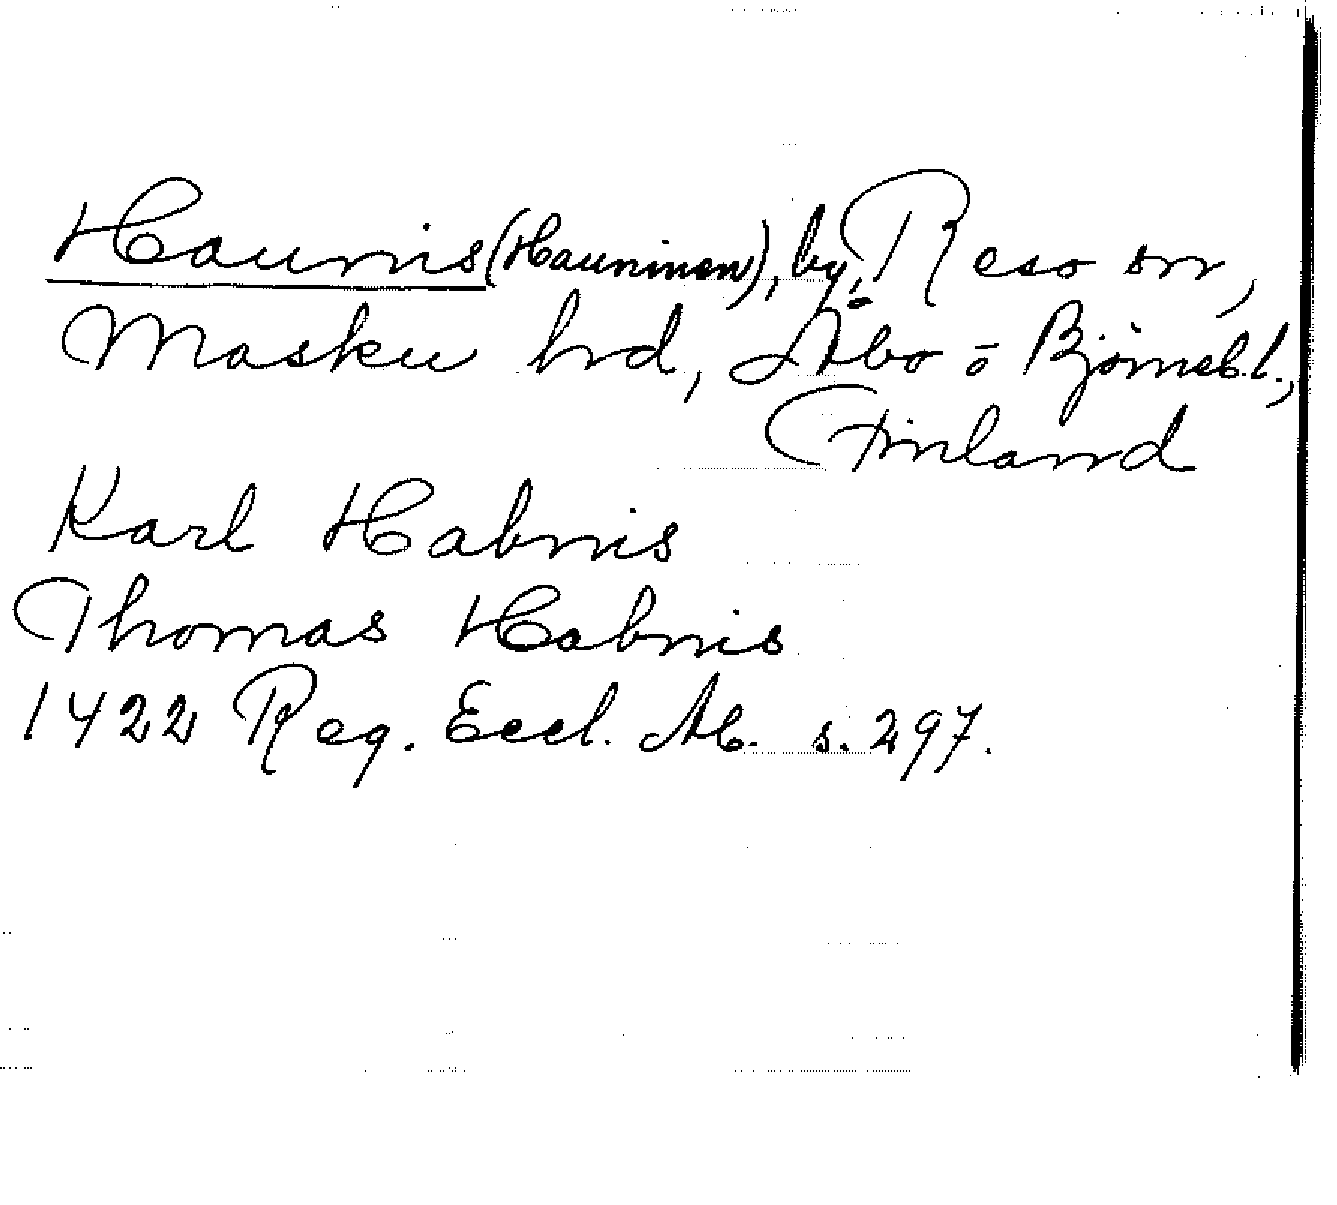 Haunis (Hauninen), by, Reso sn,
Masku hd, Åbo o Björneb.l.,
Finland
Karl Habnis
Thomas Habnis
1422 Reg. Eccl. Ab. s. 297.